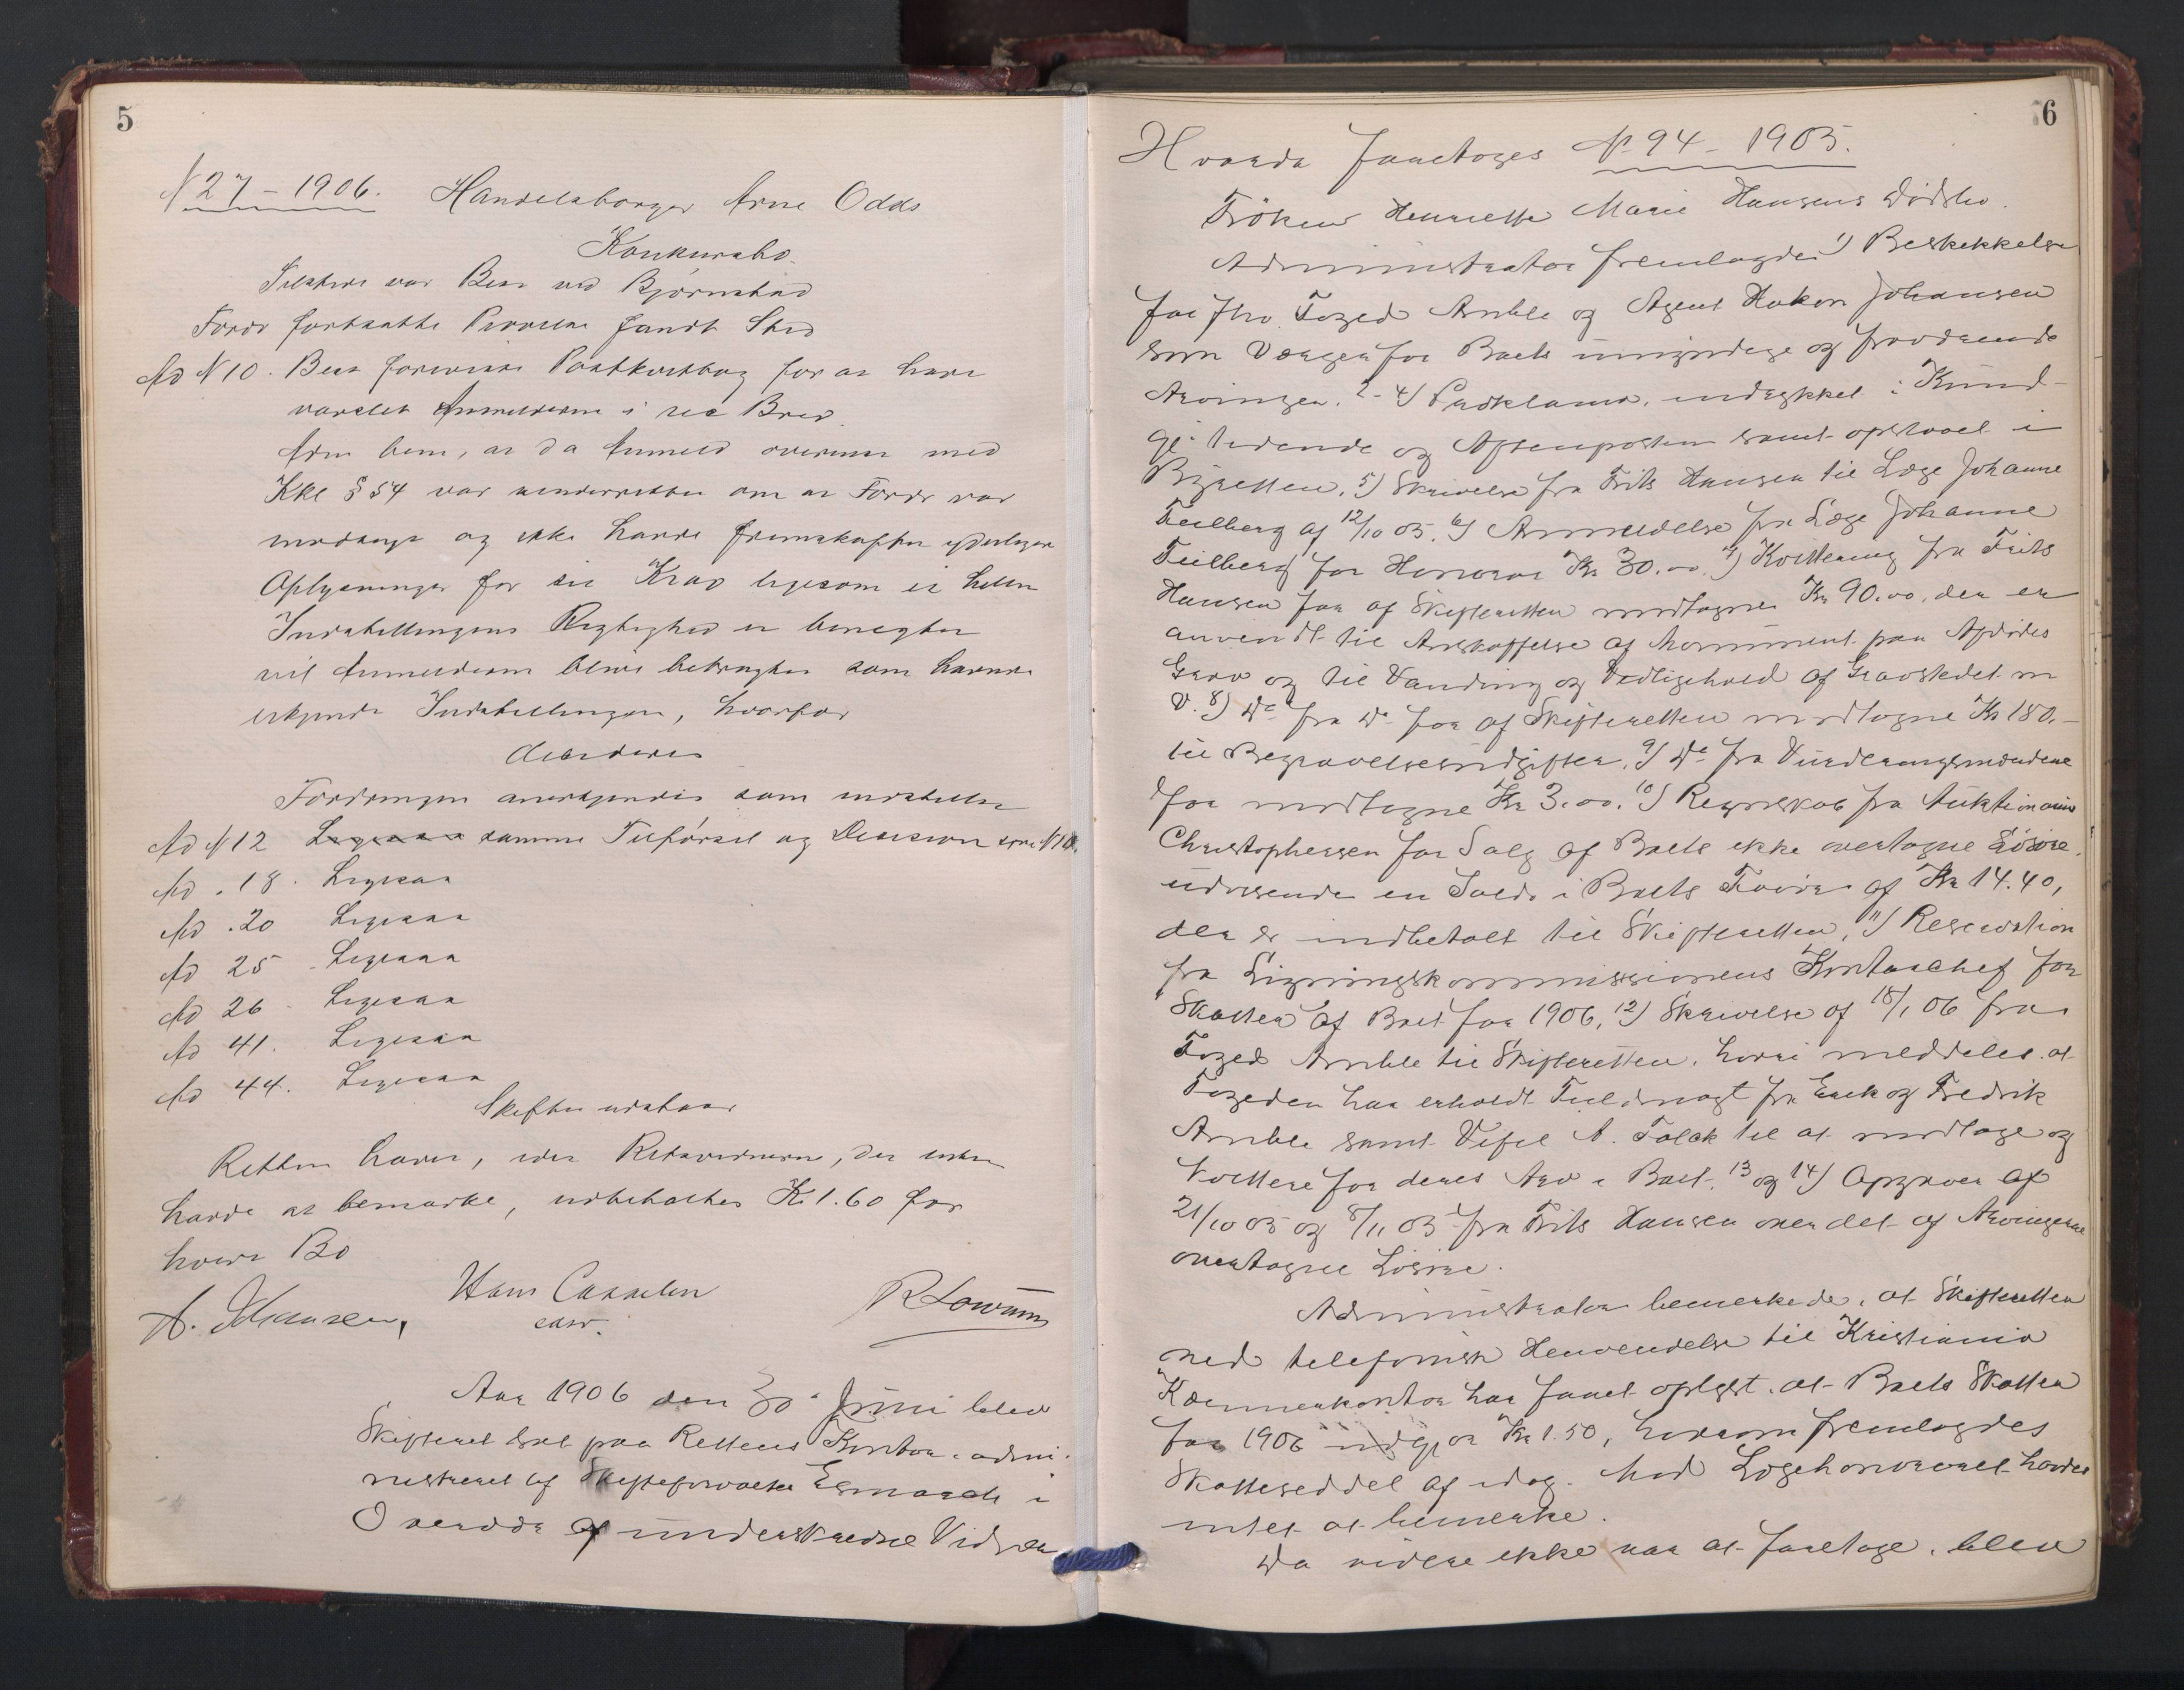 5
N 27 – 1906. Handelsborger Arne Odds
Konkursbo.
Tilstede var Best ved Bjørnstad
Fords fortsatte Prøvelse fandt Sted
Ad N 10. Best foreviste Postkvitbog for at have
varslet Anmelderne i rec Brev.
Adm bem, at da Anmeld overens med
Kkl § 54 var underrettet om at Fordr var
modsagt og ikke havde fremskaffet yderligere
Oplysninger for sit Krav ligesom ei heller
Indstillingens Rigtighed er benegtet
vil Anmelderne blive betragtet som havende
erkjendt Indstillingen, hvorfor
decideres
Fordringen anerkjendes som indstillet
Ad N 12 Ligesaa samme Tilførsel og Decision som N 10.
Ad . 18. Ligesaa
Ad . 20 Ligesaa
Ad 25 Ligesaa
Ad 26 Ligesaa
Ad 41. Ligesaa
Ad 44. Ligesaa
Skiftet udstaar
Retten hævet, efter Retsvidnerne, der intet
havde at bemærke, udbetaltes K. 1.60 for
hvert Bo
A. Johansen, Hans
edsv.
Aar 1906 den 30' Juni blev
Skifteret sat paa Rettens Kontor, admi-
nistreret af Skifteforvalter Esmarch i
Overvær af underskrevne Vidner.
6
Hvorda foretoges N. 94 – 1905.
Frøken Henriette Marie Hansens Dødsbo.
Administrator fremlagde: 1) Beskikkelse
for fhv. Foged Amble og Agent Hakon Johansen
som Værger for Boets umyndige og fraværende
Arvinger. 2-4) Proklama, indrykket i Kund-
gj. tidende og Aftenposten samt opslaaet i
Byretten, 5) Skrivelse fra Frits Hansen til Læge Johanne
Feilberg af 12/10 05. 6) Anmeldelse fra Læge Johanne
Feilberg for Honorar Kr 30.00. 7) Kvittering fra Frits
Hansen for af Skifteretten modtagne Kr 90.00, der er
anvendt til Anskaffelse af Monument paa Afdødes
Grav og til Vanding og Vedligehold af Gravstedet m
v. 8) Do fra Do for af Skifteretten modtagne Kr 180.–
til Begravelsesudgifter, 9) Do fra Vurderingsmændene
for modtagne Kr 3.00. 10) Regnskab fra Auktionarius
Christophersen for Salg af Boets ikke overtagne Løsøre,
udvisende en Saldo i Boets Favør af Kr 14.40,
der er indbetalt til Skifteretten, 11) Reservation
fra Ligningskommissionens Kontorchef for
Skatter af Boet for 1906, 12) Skrivelse af 15/1 06 fra
Foged Amble til Skifteretten, hvori meddeles, at
Fogeden har erholdt Fuldmagt fra Erik og Fredrik
Amble samt A. Falck til at modtage og
kvittere for deres Arv i Boet. 13 og 14) Opgaver af
21/10 05 og 8/11 05 fra Frits Hansen over det af Arvingerne
overtagne Løsøre.
Administrator bemerkede, at Skifteretten
ved telefonisk Henvendelse til Kristiania
Kæmnerkontor har faaet oplyst, at Boets Skatter
for 1906 udgjør Kr 1.50, hvorom fremlagdes
Skatteseddel af idag. Mod Lægehonoraret havdes
intet at bemerke.
Da videre ikke var at foretage, blev